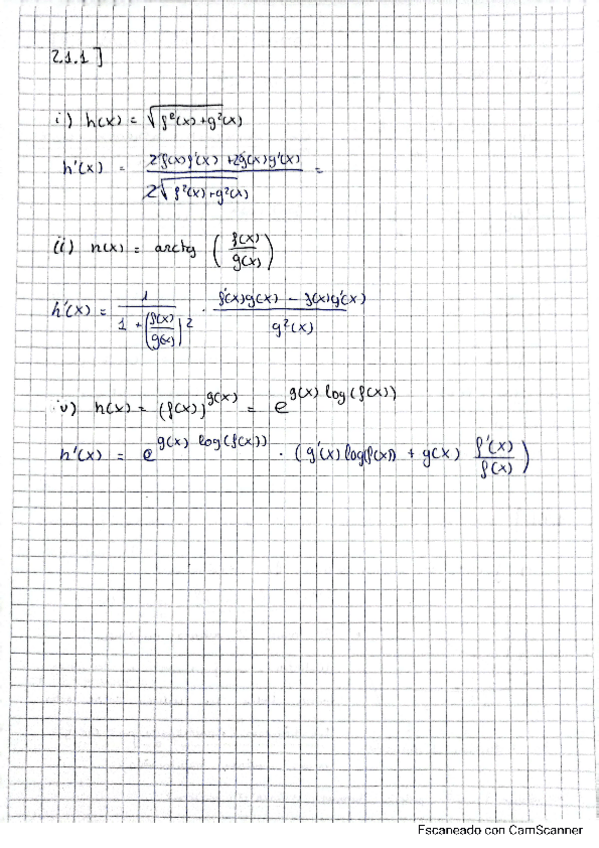 2.1.1]
i) h(x) = √(f²(x)+g²(x))
h'(x) = (2f(x)f'(x) + 2g(x)g'(x)) / (2√(f²(x)+g²(x))) =
ii) h(x) = arctg (f(x)/g(x))
h'(x) = 1/(1 + (f(x)/g(x))²) · (f'(x)g(x) - f(x)g'(x))/g²(x)
iv) h(x) = (f(x))^g(x) = e^(g(x) log(f(x)))
h'(x) = e^(g(x) log(f(x))) · (g'(x) log(f(x)) + g(x) f'(x)/f(x))
Escaneado con CamScanner